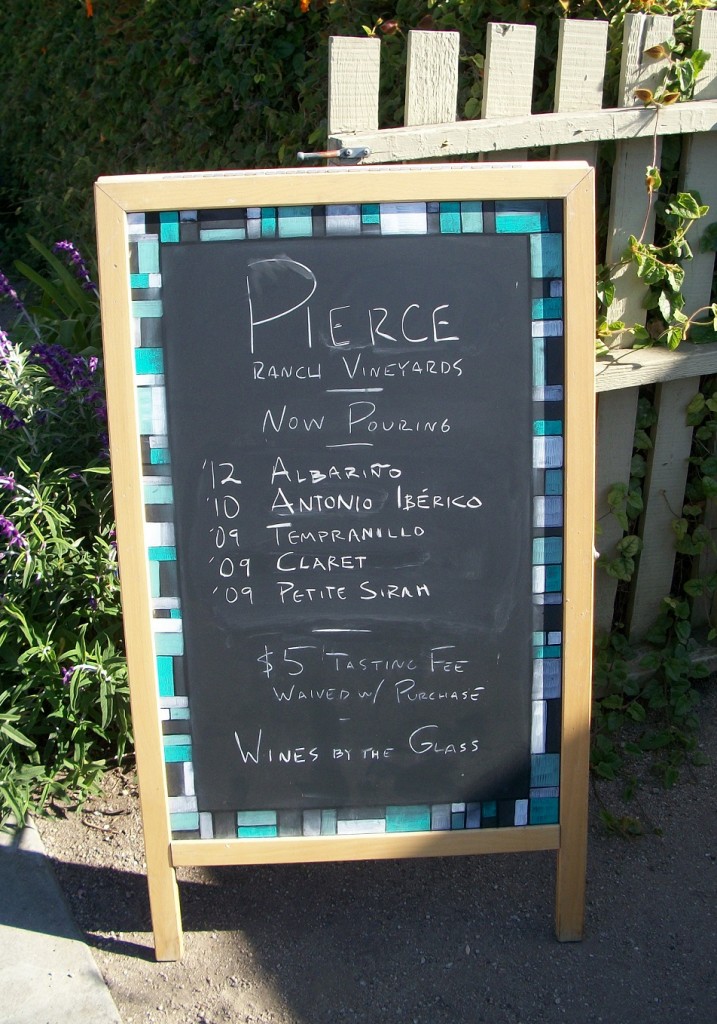 PIERCE
RANCH VINEYARDS
NOW POURING
'12 ALBARIÑO
'10 ANTONIO IBÉRICO
'09 TEMPRANILLO
'09 CLARET
'09 PETITE SIRAH
$5 TASTING FEE
WAIVED W/ PURCHASE
WINES BY THE GLASS